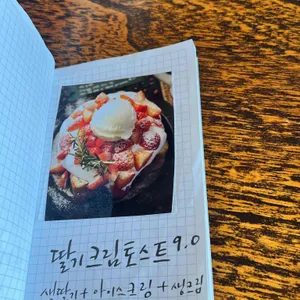 딸기크림토스트 9.0
생딸기 + 아이스크림 + 생크림